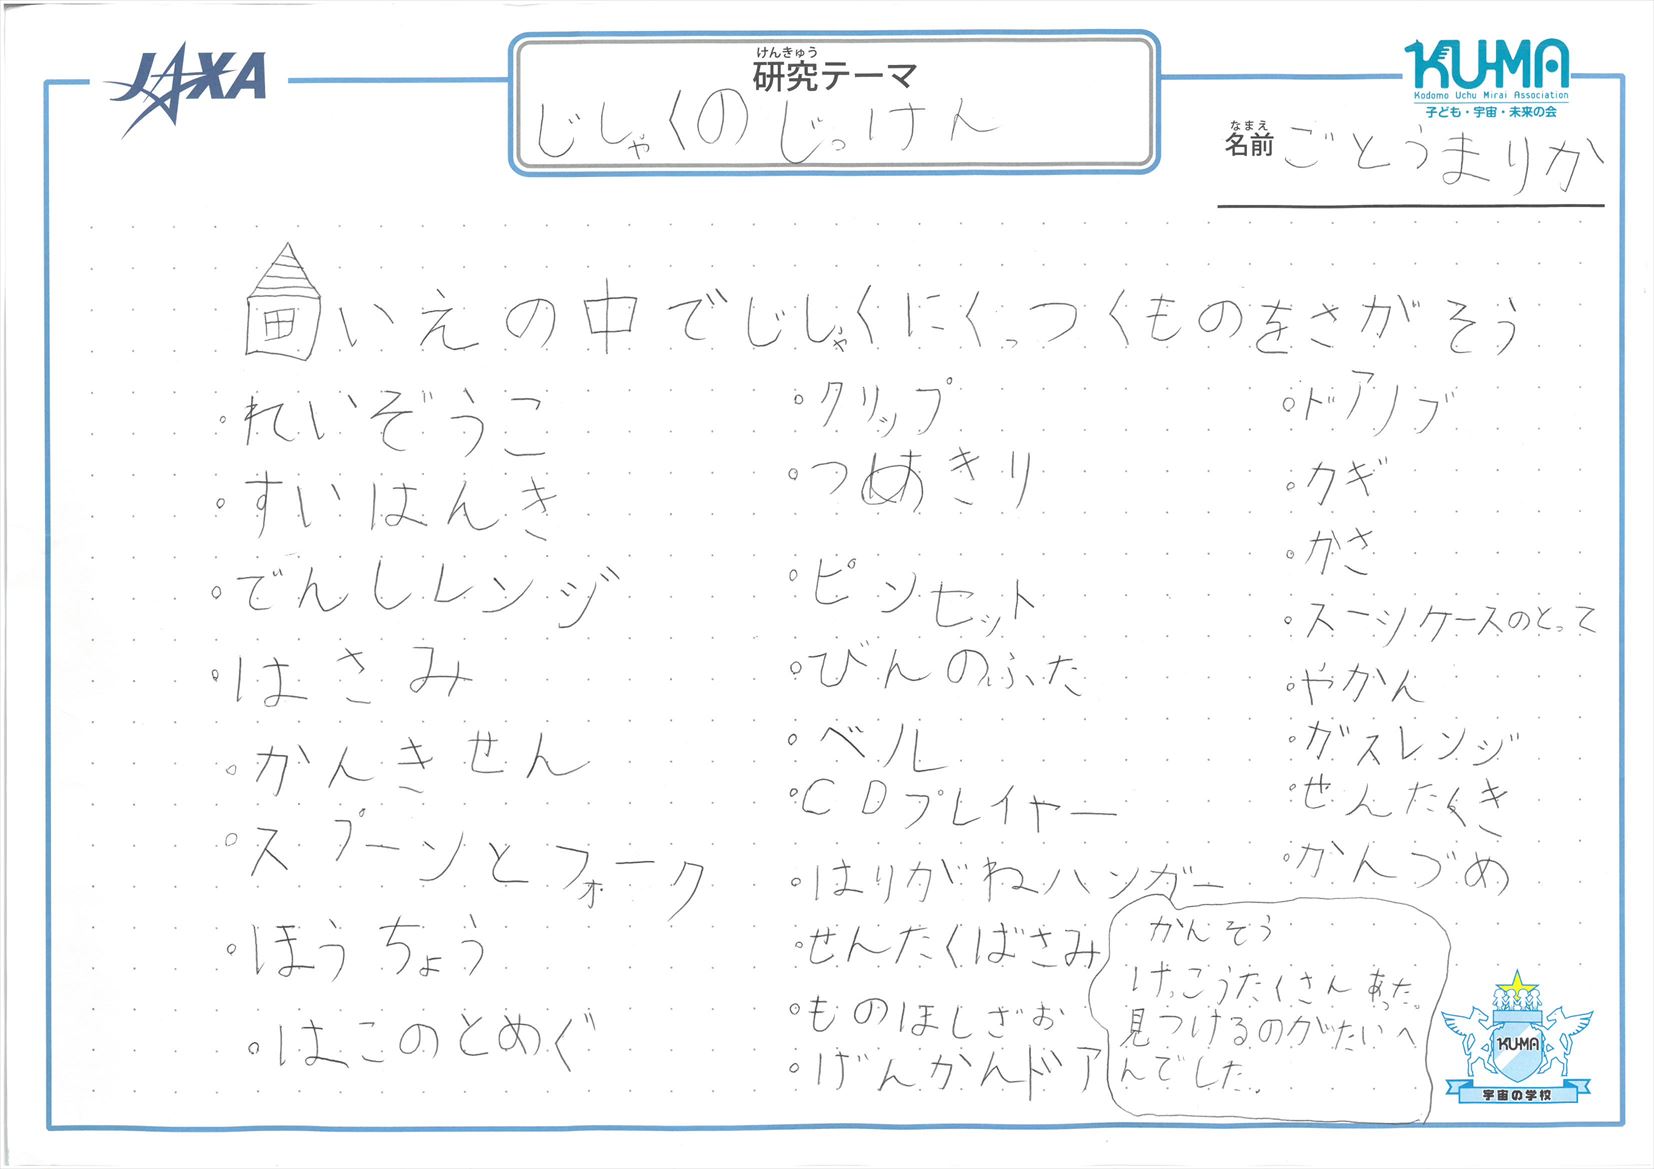 JAXA
けんきゅう
研究テーマ
じしゃくのじっけん
KU-MA
Kodomo Uchu Mirai Association
子ども・宇宙・未来の会
なまえ
名前 ごとうまりか
いえの中でじしゃくにくっつくものをさがそう
・れいぞうこ
・すいはんき
・でんしレンジ
・はさみ
・かんきせん
・スプーンとフォーク
・ほうちょう
・はこのとめぐ
・クリップ
・つめきり
・ピンセット
・びんのふた
・ベル
・CDプレイヤー
・はりがねハンガー
・せんたくばさみ
・ものほしざお
・げんかんドア
・ドアノブ
・カギ
・かさ
・スーツケースのとって
・やかん
・ガスレンジ
・せんたくき
・かんづめ
かんそう
けっこうたくさんあった。
見つけるのがたいへ
んでした。
KU-MA
宇宙の学校